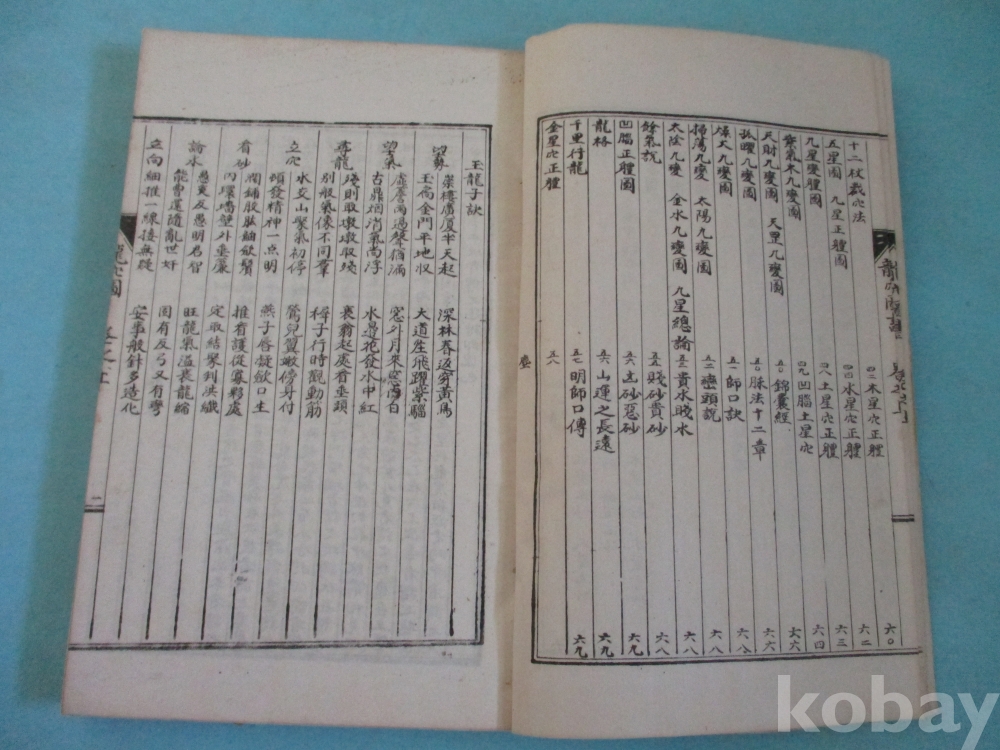 十二杖裁穴法 六〇
五星圖 九星正體圖 四二 木星穴正體 六二
九星變體圖 四四 水星穴正體 六三
紫氣木九變圖 四八 土星穴正體 六四
天財九變圖 天罡九變圖 四九 凹腦土星穴 六六
孤曜九變圖 五〇 錦囊經 六六
燥火九變圖 五〇 脉法十二章 六八
掃蕩九變 太陽九變圖 五一 師口訣 六八
太陰九變 金水九變圖 九星總論 五二 巒頭說 六八
餘氣說 五三 貴水賤水 六八
凹腦正體圖 五五 賤砂貴砂 六九
龍格 五六 吉砂惡砂 六九
千里行龍 五六 山運之長遠 六九
金星穴正體 五七 明師口傳 六九
五八
玉龍子訣
望勢 崇樓廣厦半天起 深林春返穿黃鳥
玉扃金門平地收 大道塵飛躍紫騮
虛簷雨過聲猶滴 窓外月來窓內白
望氣 古鼎烟消氣尚浮 水邊花發水中紅
殘則取墩墩取殘 裒翁起處看垂頭
尋龍 別般氣像不同羣 稱子行時觀動筋
水交山聚氣初停 鶯兒翼皷停身付
立穴 頃發精神一点明 燕子唇凝歛口生
潤鋪肢肱細歛鬚 推看護從寡夥處
看砂 內環墻壁外垂簾 定取結翠到洪纖
愚爽反愚明君智 旺龍氣溢長龍騎
論水 能曹還隨亂世奸 固有反弓又有彎
立向 細推一線接無疑 安事般針多造化